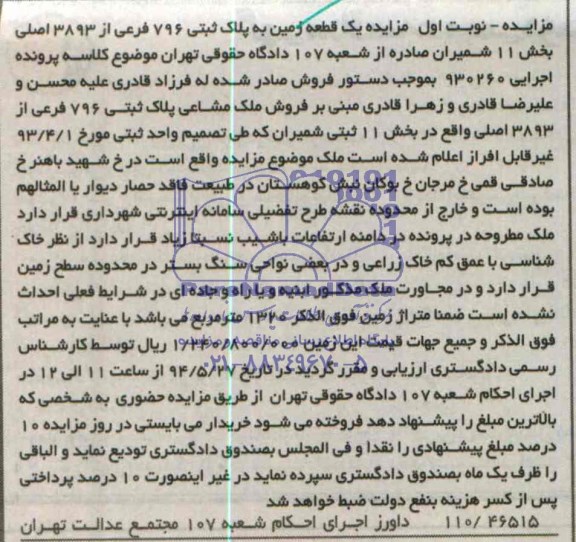 مزایده - نوبت اول مزایده یک قطعه زمین به پلاک ثبتی ۷۹۶ فرعی از ۳۸۹۳ اصلی
بخش ۱۱ شمیران صادره از شعبه ۱۰۷ دادگاه حقوقی تهران موضوع کلاسه پرونده
اجرایی ۹۳۰۲۶۰ بموجب دستور فروش صادر شده له فرزاد قادری علیه محسن و
علیرضا قادری و زهرا قادری مبنی بر فروش ملک مشاعی پلاک ثبتی ۷۹۶ فرعی از
۳۸۹۳ اصلی واقع در بخش ۱۱ ثبتی شمیران که طی تصمیم واحد ثبتی مورخ ۹۳/۴/۱
غیرقابل افراز اعلام شده است ملک موضوع مزایده واقع است در خ شهید باهنر خ
صادقی قمی خ مرجان خ بوکان نبش کوهستان در طبیعت فاقد حصار دیوار یا المثالهم
بوده است و خارج از محدوده نقشه طرح تفضیلی سامانه اینترنتی شهرداری قرار دارد
ملک مطروحه در پرونده در دامنه ارتفاعات باشیب نسبتا زیاد قرار دارد از نظر خاک
شناسی با عمق کم خاک زراعی و در بعضی نواحی سنگ بستر در محدوده سطح زمین
قرار دارد و در مجاورت ملک مذکور ابنیه و یا راه و جاده ای در شرایط فعلی احداث
نشده است ضمنا متراژ زمین فوق الذکر ۱۳۲۰ مترمربع می باشد با عنایت به مراتب
فوق الذکر و جمیع جهات قیمت این زمین ریال توسط کارشناس
رسمی دادگستری ارزیابی و مقرر گردید در تاریخ ۹۴/۵/۲۷ از ساعت ۱۱ الی ۱۲ در
اجرای احکام شعبه ۱۰۷ دادگاه حقوقی تهران از طریق مزایده حضوری به شخصی که
بالاترین مبلغ را پیشنهاد دهد فروخته می شود خریدار می بایستی در روز مزایده ۱۰
درصد مبلغ پیشنهادی را نقدا و فی المجلس بصندوق دادگستری تودیع نماید و الباقی
را ظرف یک ماه بصندوق دادگستری سپرده نماید در غیر اینصورت ۱۰ درصد پرداختی
پس از کسر هزینه بنفع دولت ضبط خواهد شد
۱۱۰/ ۴۶۵۱۵ داورز اجرای احکام شعبه ۱۰۷ مجتمع عدالت تهران
۰۲۱-۸۸۳۴۹۶۷۰-۵